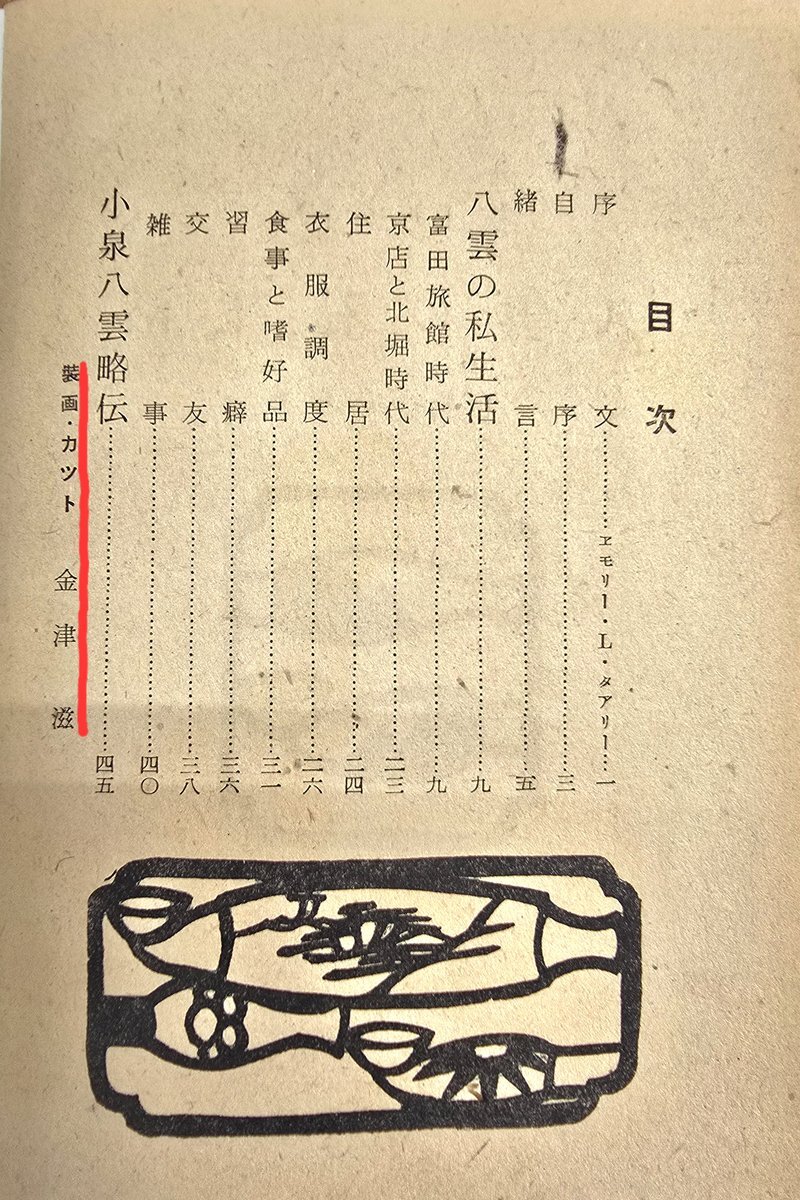 目次
序文……エモリー・L・タアリー…一
自序……三
緒言……五
八雲の私生活……九
富田旅館時代……九
京店と北堀時代……二三
住居……二四
衣服調度……二六
食事と嗜好品……三一
習癖……三六
交友……三八
雑事……四〇
小泉八雲略伝……四五
装画・カツト 金津滋